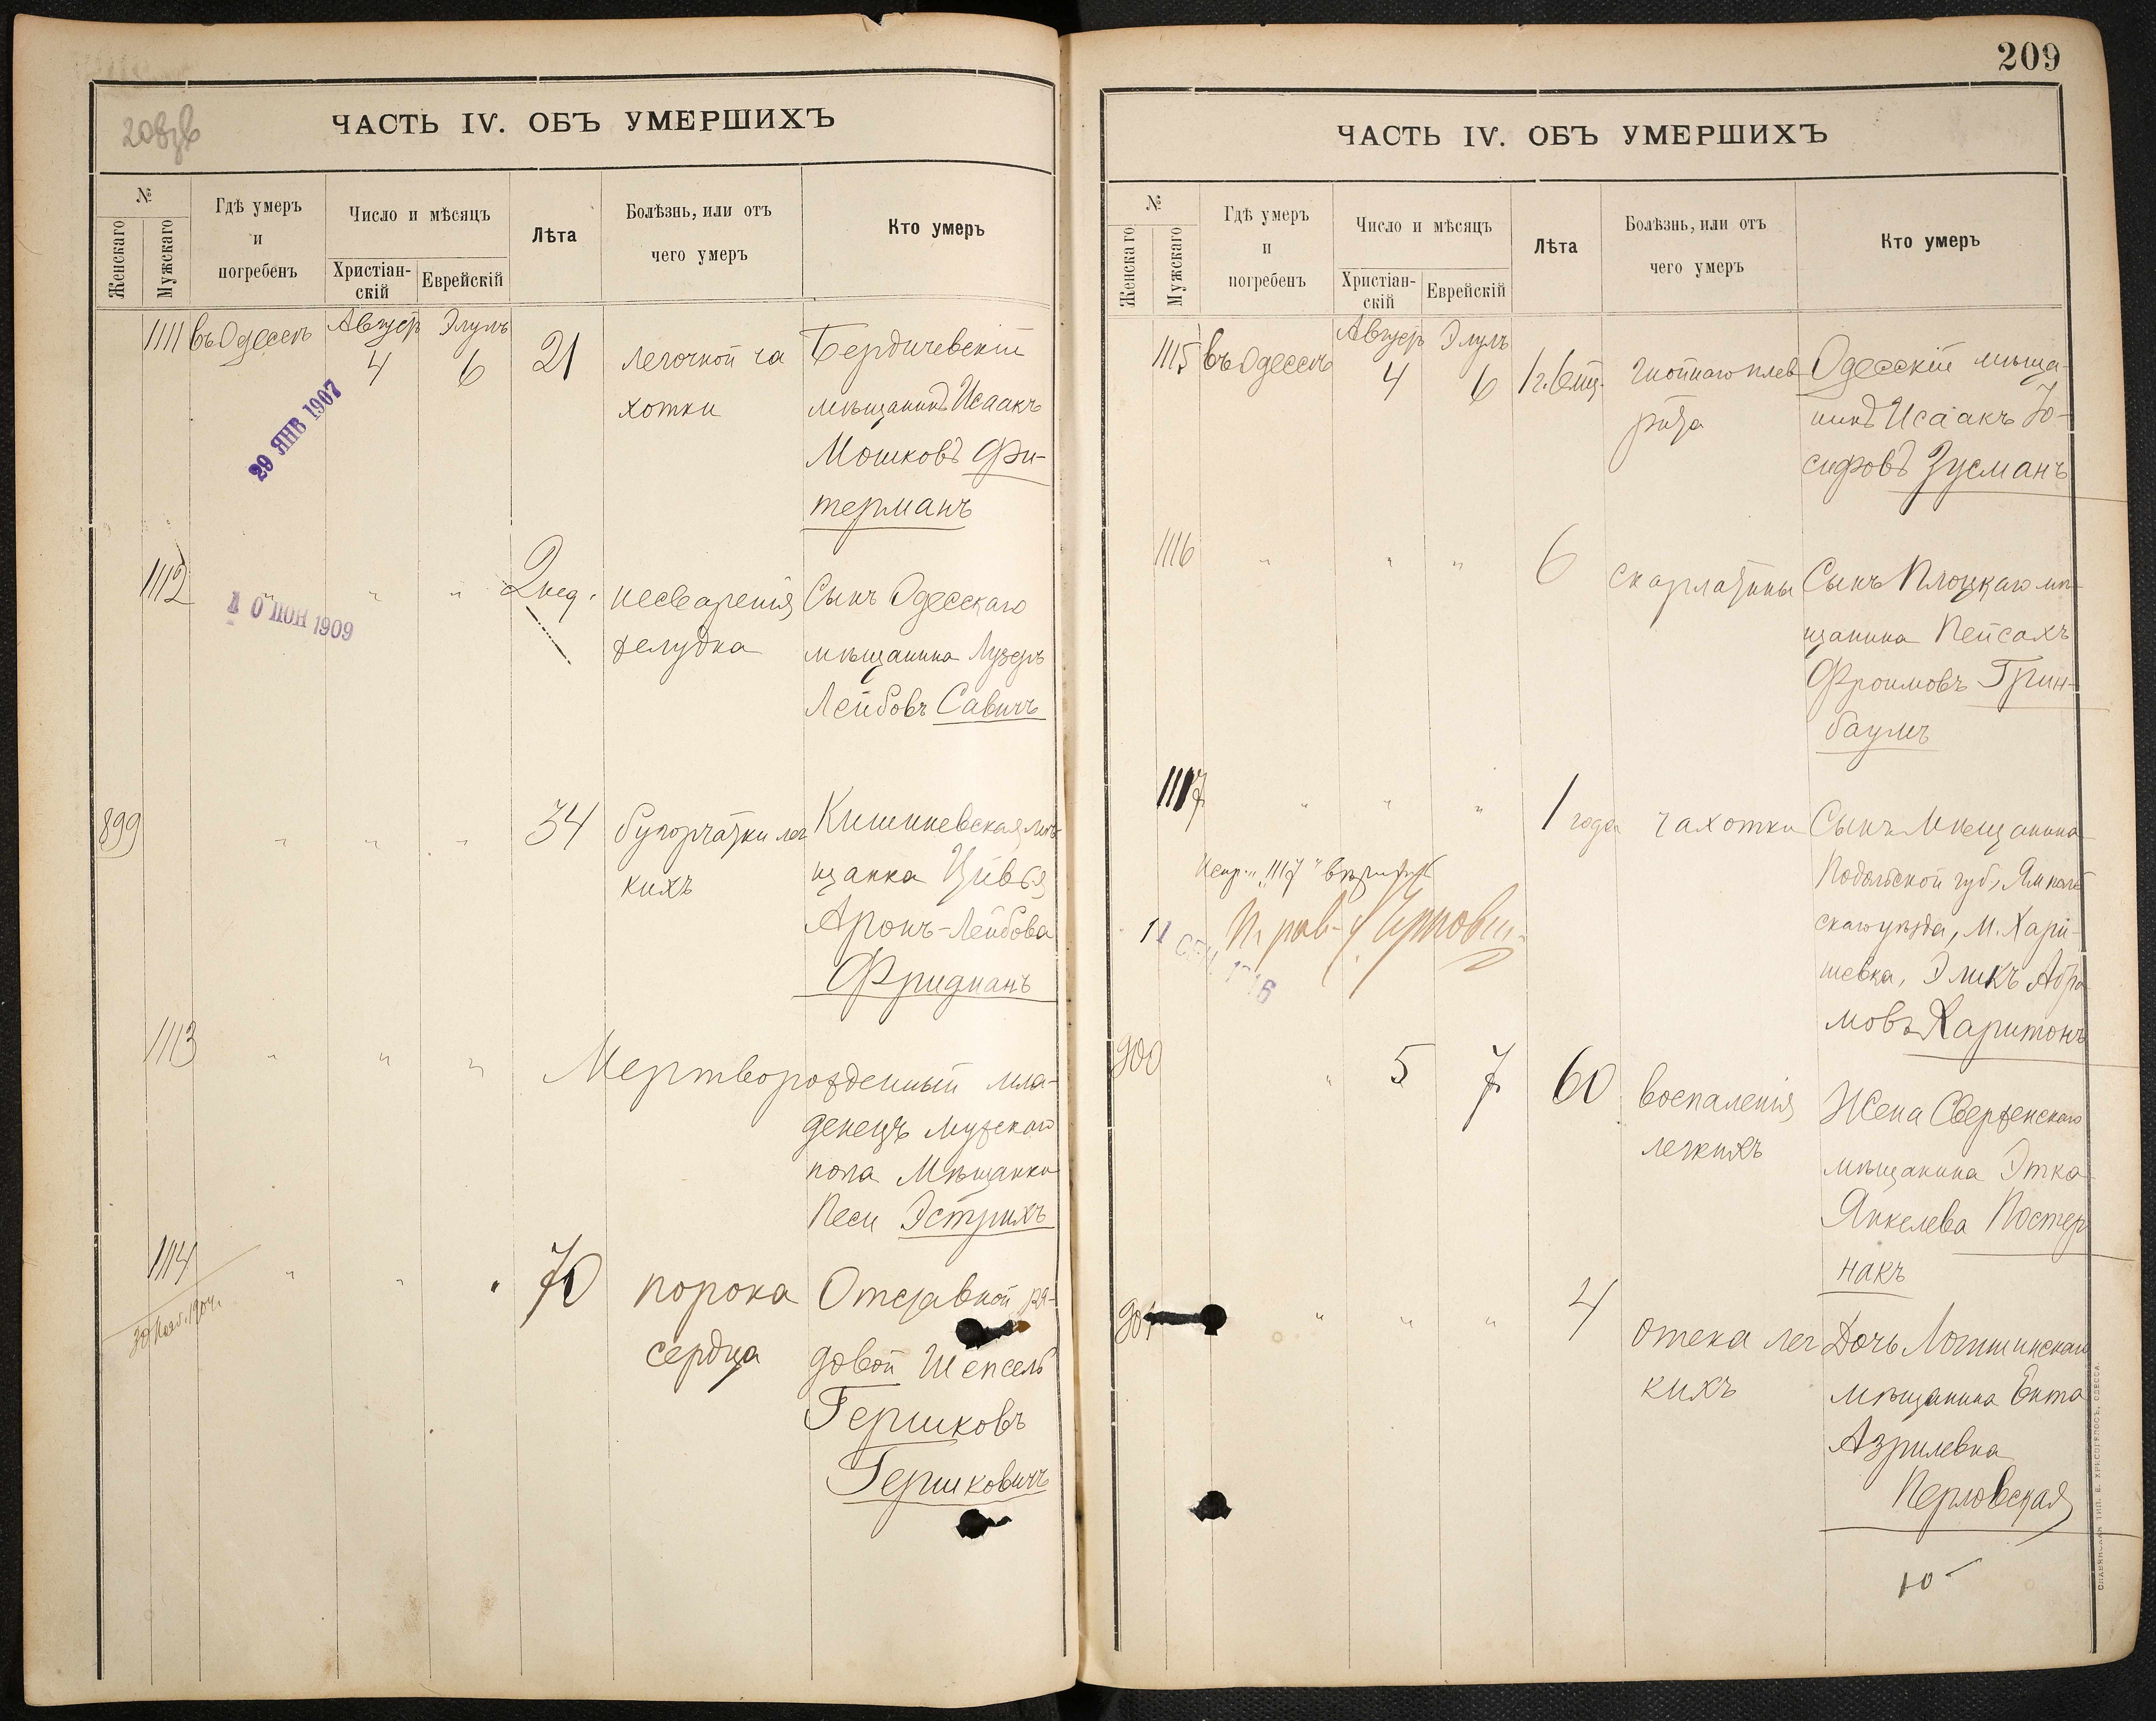 ЧАСТЬ IV. ОБЪ УМЕРШИХЪ
№
Женскаго
Мужскаго
Гдѣ умеръ
и
погребенъ
Число и мѣсяцъ
Христіан-
скій
Еврейскій
Лѣта
Болѣзнь, или отъ
чего умеръ
Кто умеръ
1111 въ Одессѣ Август Элулъ
4 6 21 легочной ча Бердичевскій
хотки мѣщанинъ Исаакъ
Мошковъ Фи-
терманъ
29 ЯНВ 1907
1112 " " " 2 нед. несваренія Сынъ Одесскаго
желудка мѣщанина Лузеръ
Лейбовъ Савичъ
10 ІЮН 1909
899 " " " 34 бугорчатки лег Кишиневская мѣ
кихъ щанка Цивья
Аронъ-Лейбова
Фридманъ
1113 " " " Мертворожденный мла-
денецъ мужскаго
пола Мѣщанки
Песи Эстрихъ
1114 " " " 70 порока Отставной ря-
сердца довой Шепсель
Гершковъ
Гершковичъ
30 Нояб. 1904г.
209
ЧАСТЬ IV. ОБЪ УМЕРШИХЪ
№
Женскаго
Мужскаго
Гдѣ умеръ
и
погребенъ
Число и мѣсяцъ
Христіан-
скій
Еврейскій
Лѣта
Болѣзнь, или отъ
чего умеръ
Кто умеръ
1115 въ Одессѣ Август Элулъ
4 6 1 г. 6 мц. гнойнаго плев Одесскій мѣща-
рита нинъ Исаакъ Іо-
сифовъ Зусманъ
1116 " " " 6 скарлатины Сынъ Плоцкаго мѣ-
щанина Пейсахъ
Фроимовъ Грин-
баумъ
1117 " " " 1 года чахотки Сынъ Мѣщанина
Подольской губ., Ямполь
скаго уѣзда, М. Хари-
шевка, Эликъ Абра
мовъ Харитонъ
Испр. "1117"
900 " 5 7 60 воспаленія Жена Сверженскаго
легкихъ мѣщанина Этка
Янкелева Постер
накъ
901 " " " 4 отека лег Дочь Логишинскаго
кихъ мѣщанина Ента
Азрилевна
Перловская
10
СЛАВЯНСКАЯ ТИП. Е. ХРИСОГЕЛОСЪ, ОДЕССА.